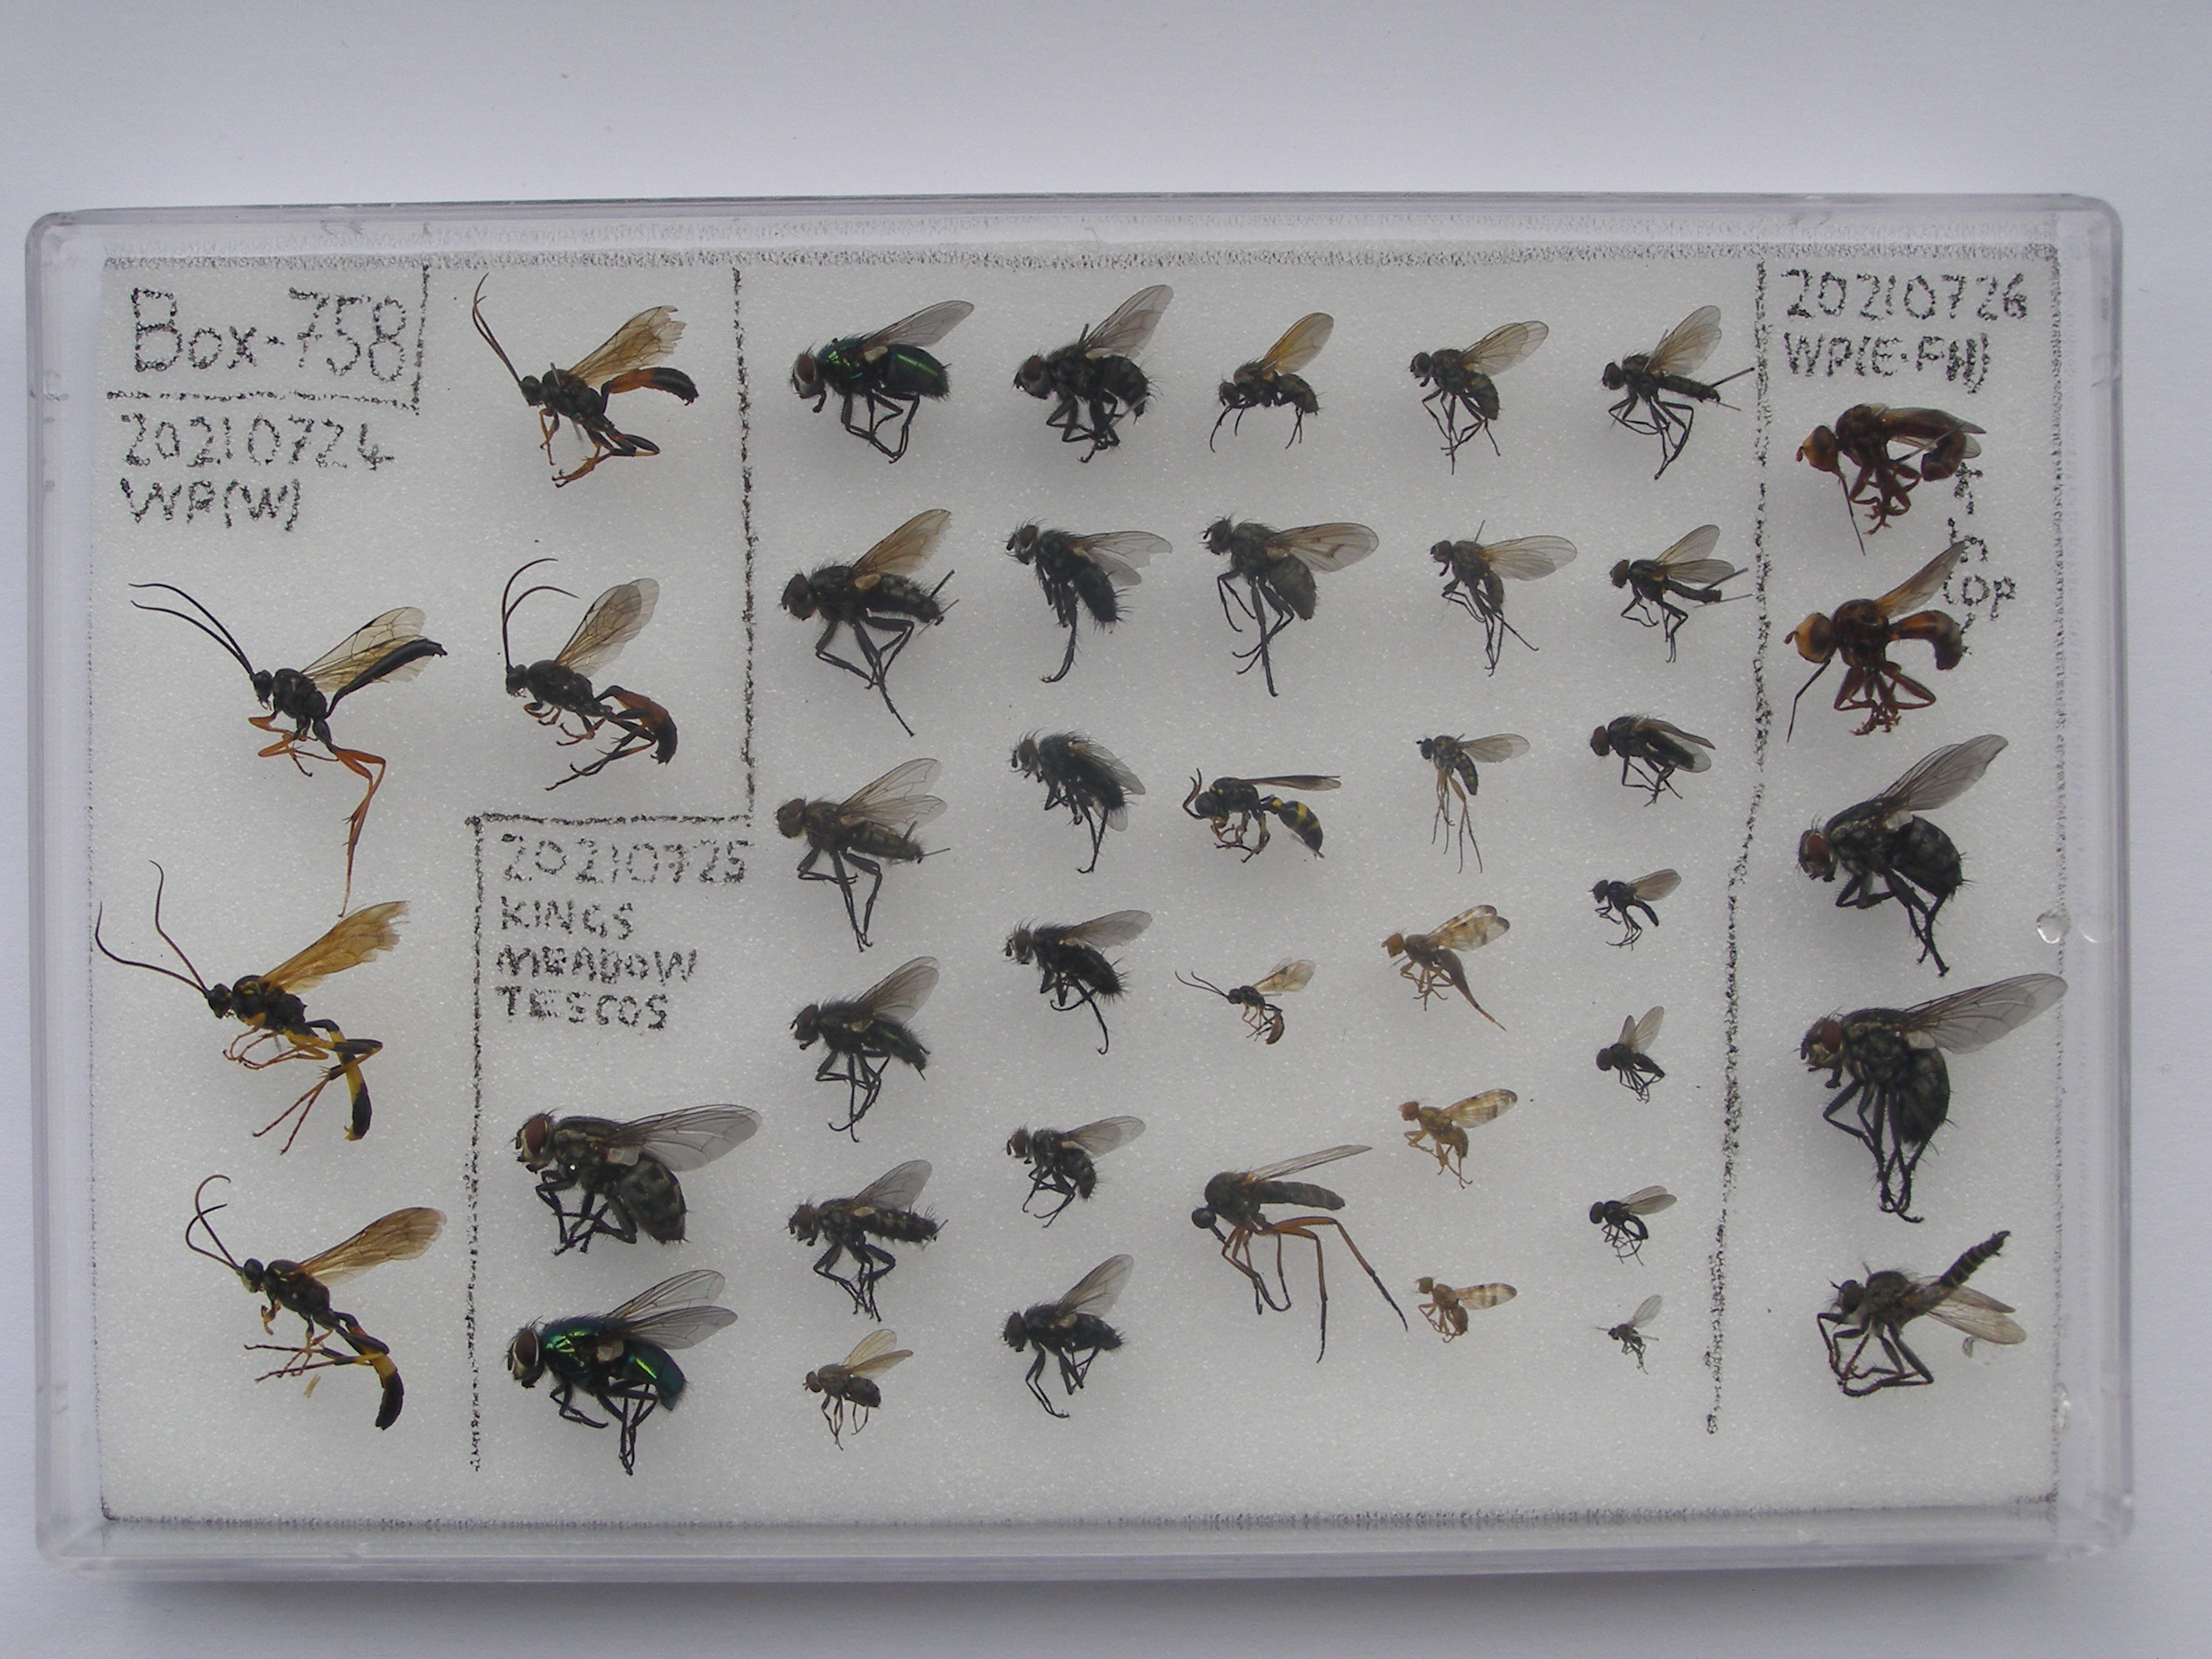 Box-758
20210724
WP(W)
20210725
KINGS
MEADOW
TESCOS
20210726
WP(E.FH)